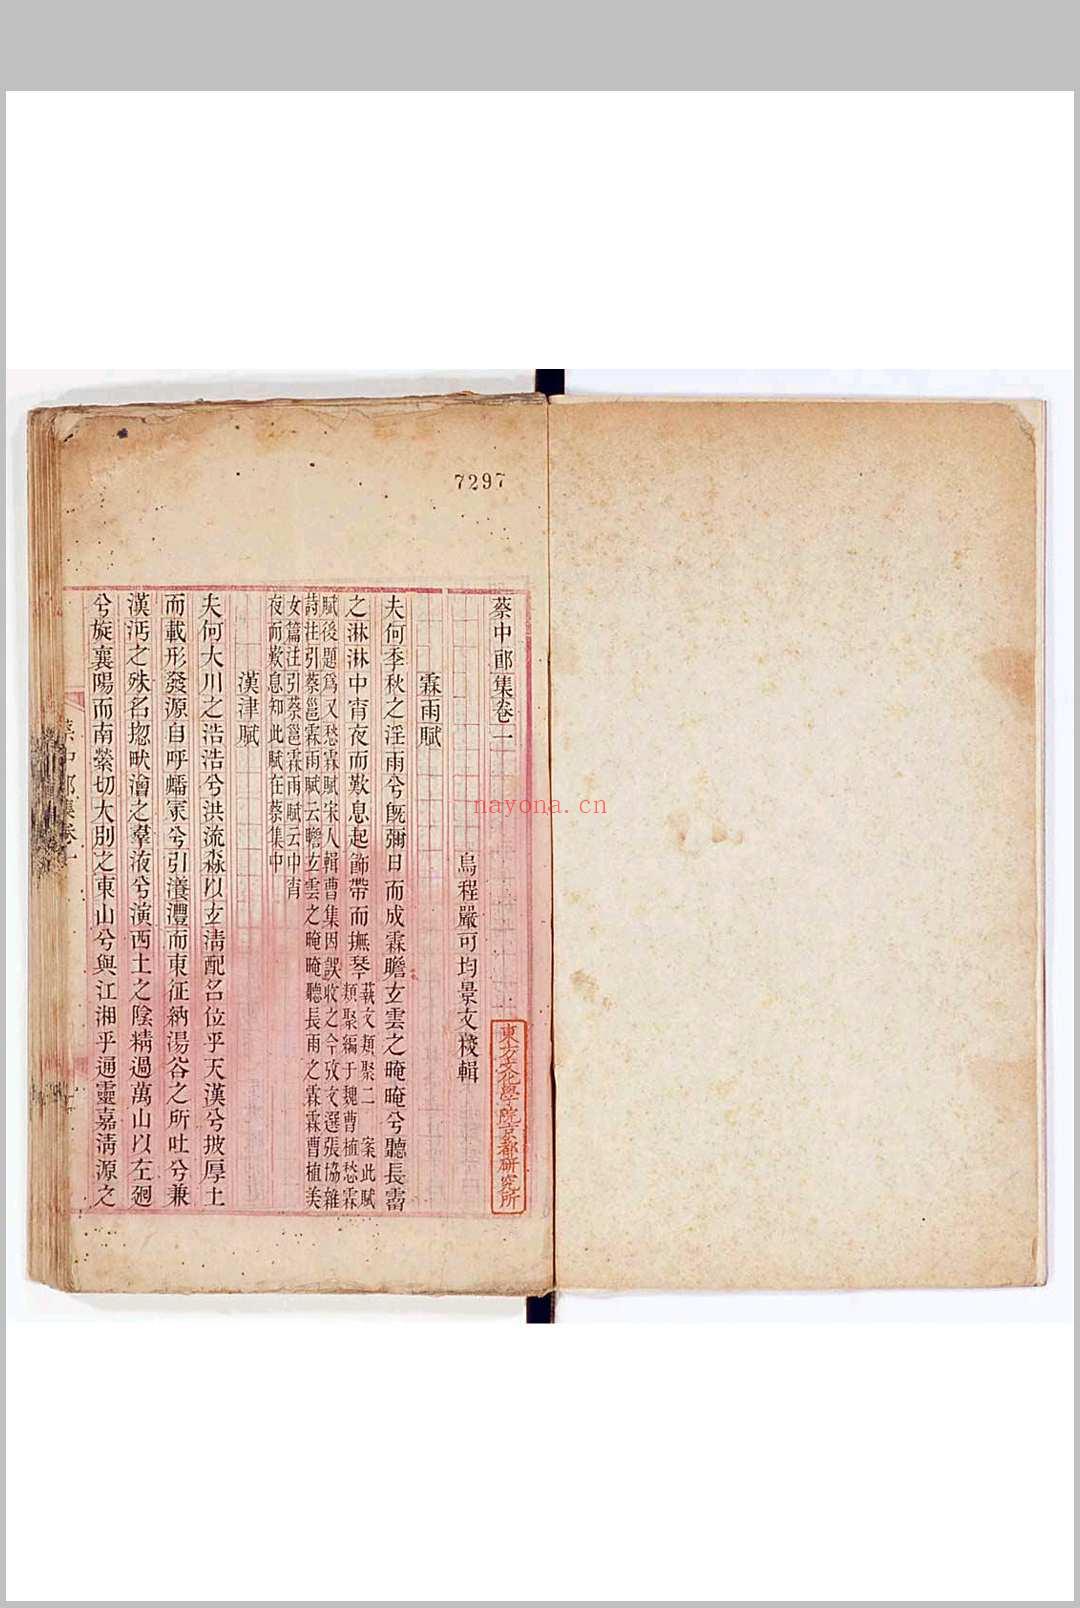 7297
蔡中郎集卷一
烏程嚴可均景文校輯
東方文化學院京都研究所
霖雨賦
夫何季秋之淫雨兮旣彌日而成霖瞻玄雲之晻晻兮聽長霤
之淋淋中宵夜而歎息起飾帶而撫琴
蓺文類聚二 案此賦
類聚編于魏曹植愁霖
賦後題爲又愁霖賦宋人輯曹集因誤收之今攷文選張協雜
詩注引蔡邕霖雨賦云瞻玄雲之晻晻聽長雨之霖霖曹植美
女篇注引蔡邕霖雨賦云中宵
夜而歎息知此賦在蔡集中
漢津賦
夫何大川之浩浩兮洪流淼以玄清配名位乎天漢兮披厚土
而載形發源自乎嶓冢兮引瀁灃而東征納湯谷之所吐兮兼
漢沔之殊名揔畎澮之羣液兮演西土之陰精過萬山以左廻
兮旋襄陽而南縈切大別之東山兮與江湘乎通靈嘉清源之
蔡中郎集卷一
nayona.cn